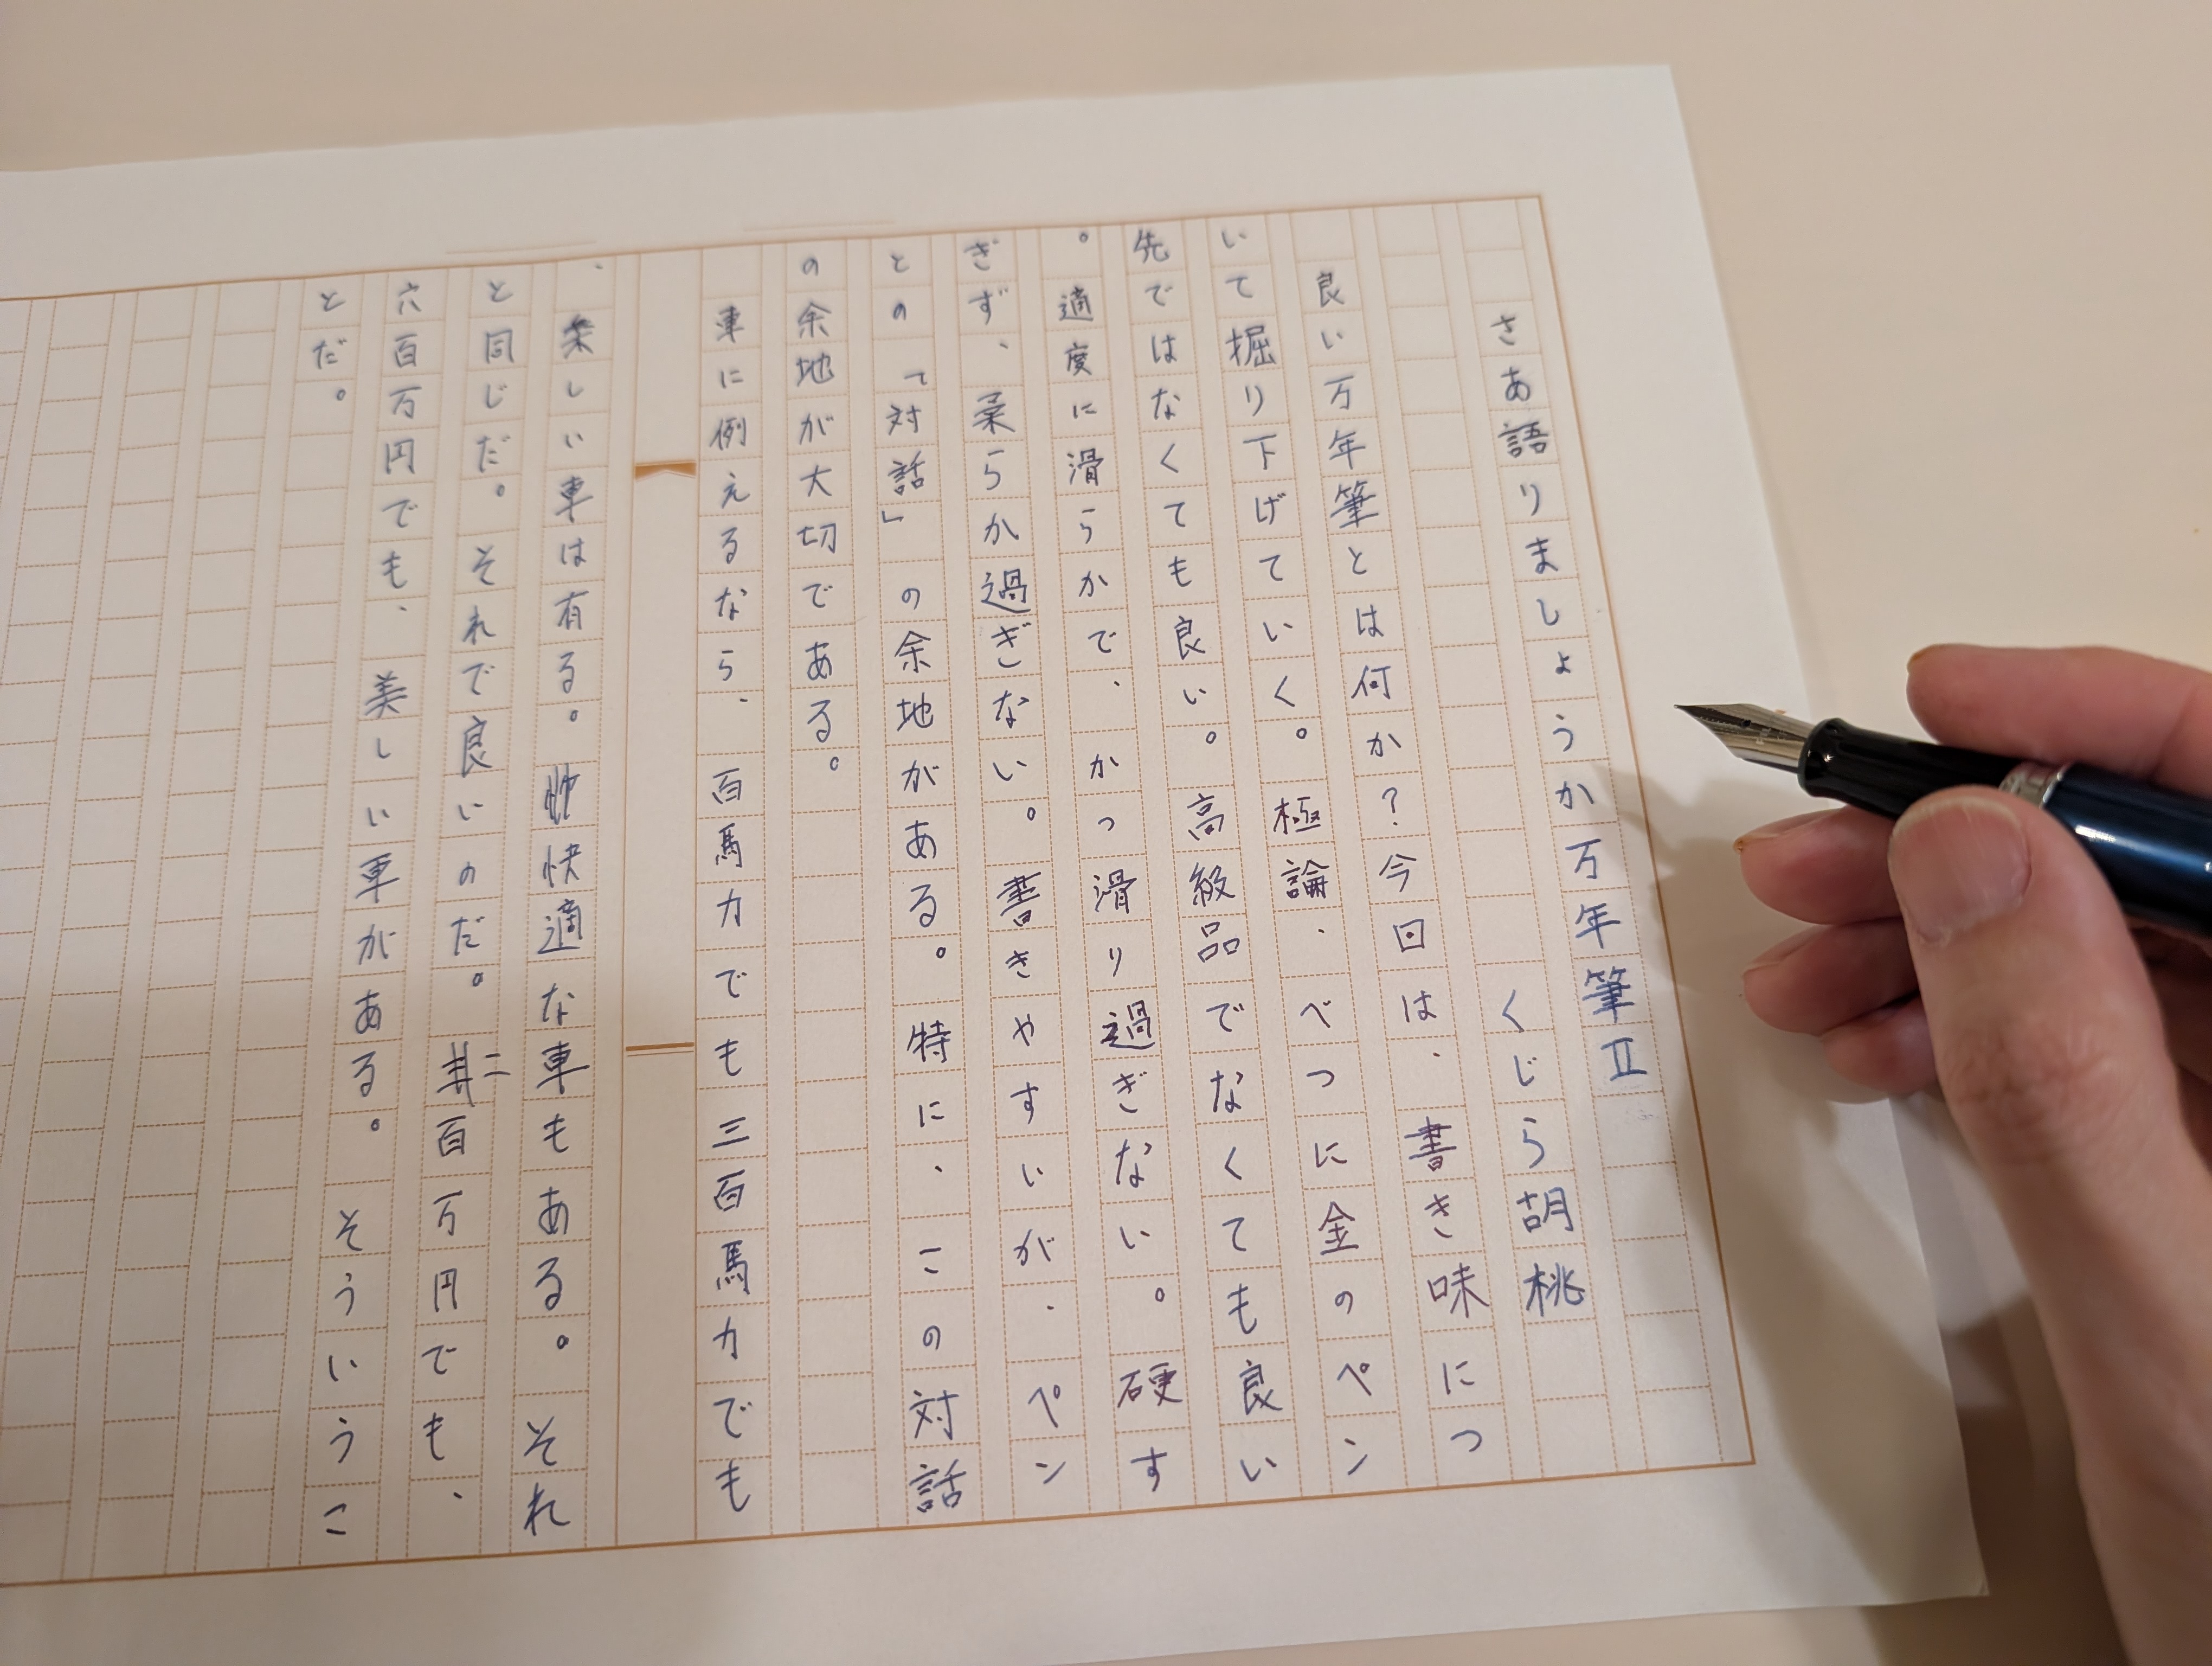 さあ語りましょうか万年筆Ⅱ
くじら胡桃
良い万年筆とは何か？今回は、書き味につ
いて掘り下げていく。極論、べつに金のペン
先ではなくても良い。高級品でなくても良い
。適度に滑らかで、かつ滑り過ぎない。硬す
ぎず、柔らか過ぎない。書きやすいが、ペン
との「対話」の余地がある。特に、この対話
の余地が大切である。
車に例えるなら、百馬力でも三百馬力でも
、楽しい車は有る。快適な車もある。それ
と同じだ。それで良いのだ。二百万円でも、
六百万円でも、美しい車がある。そういうこ
とだ。